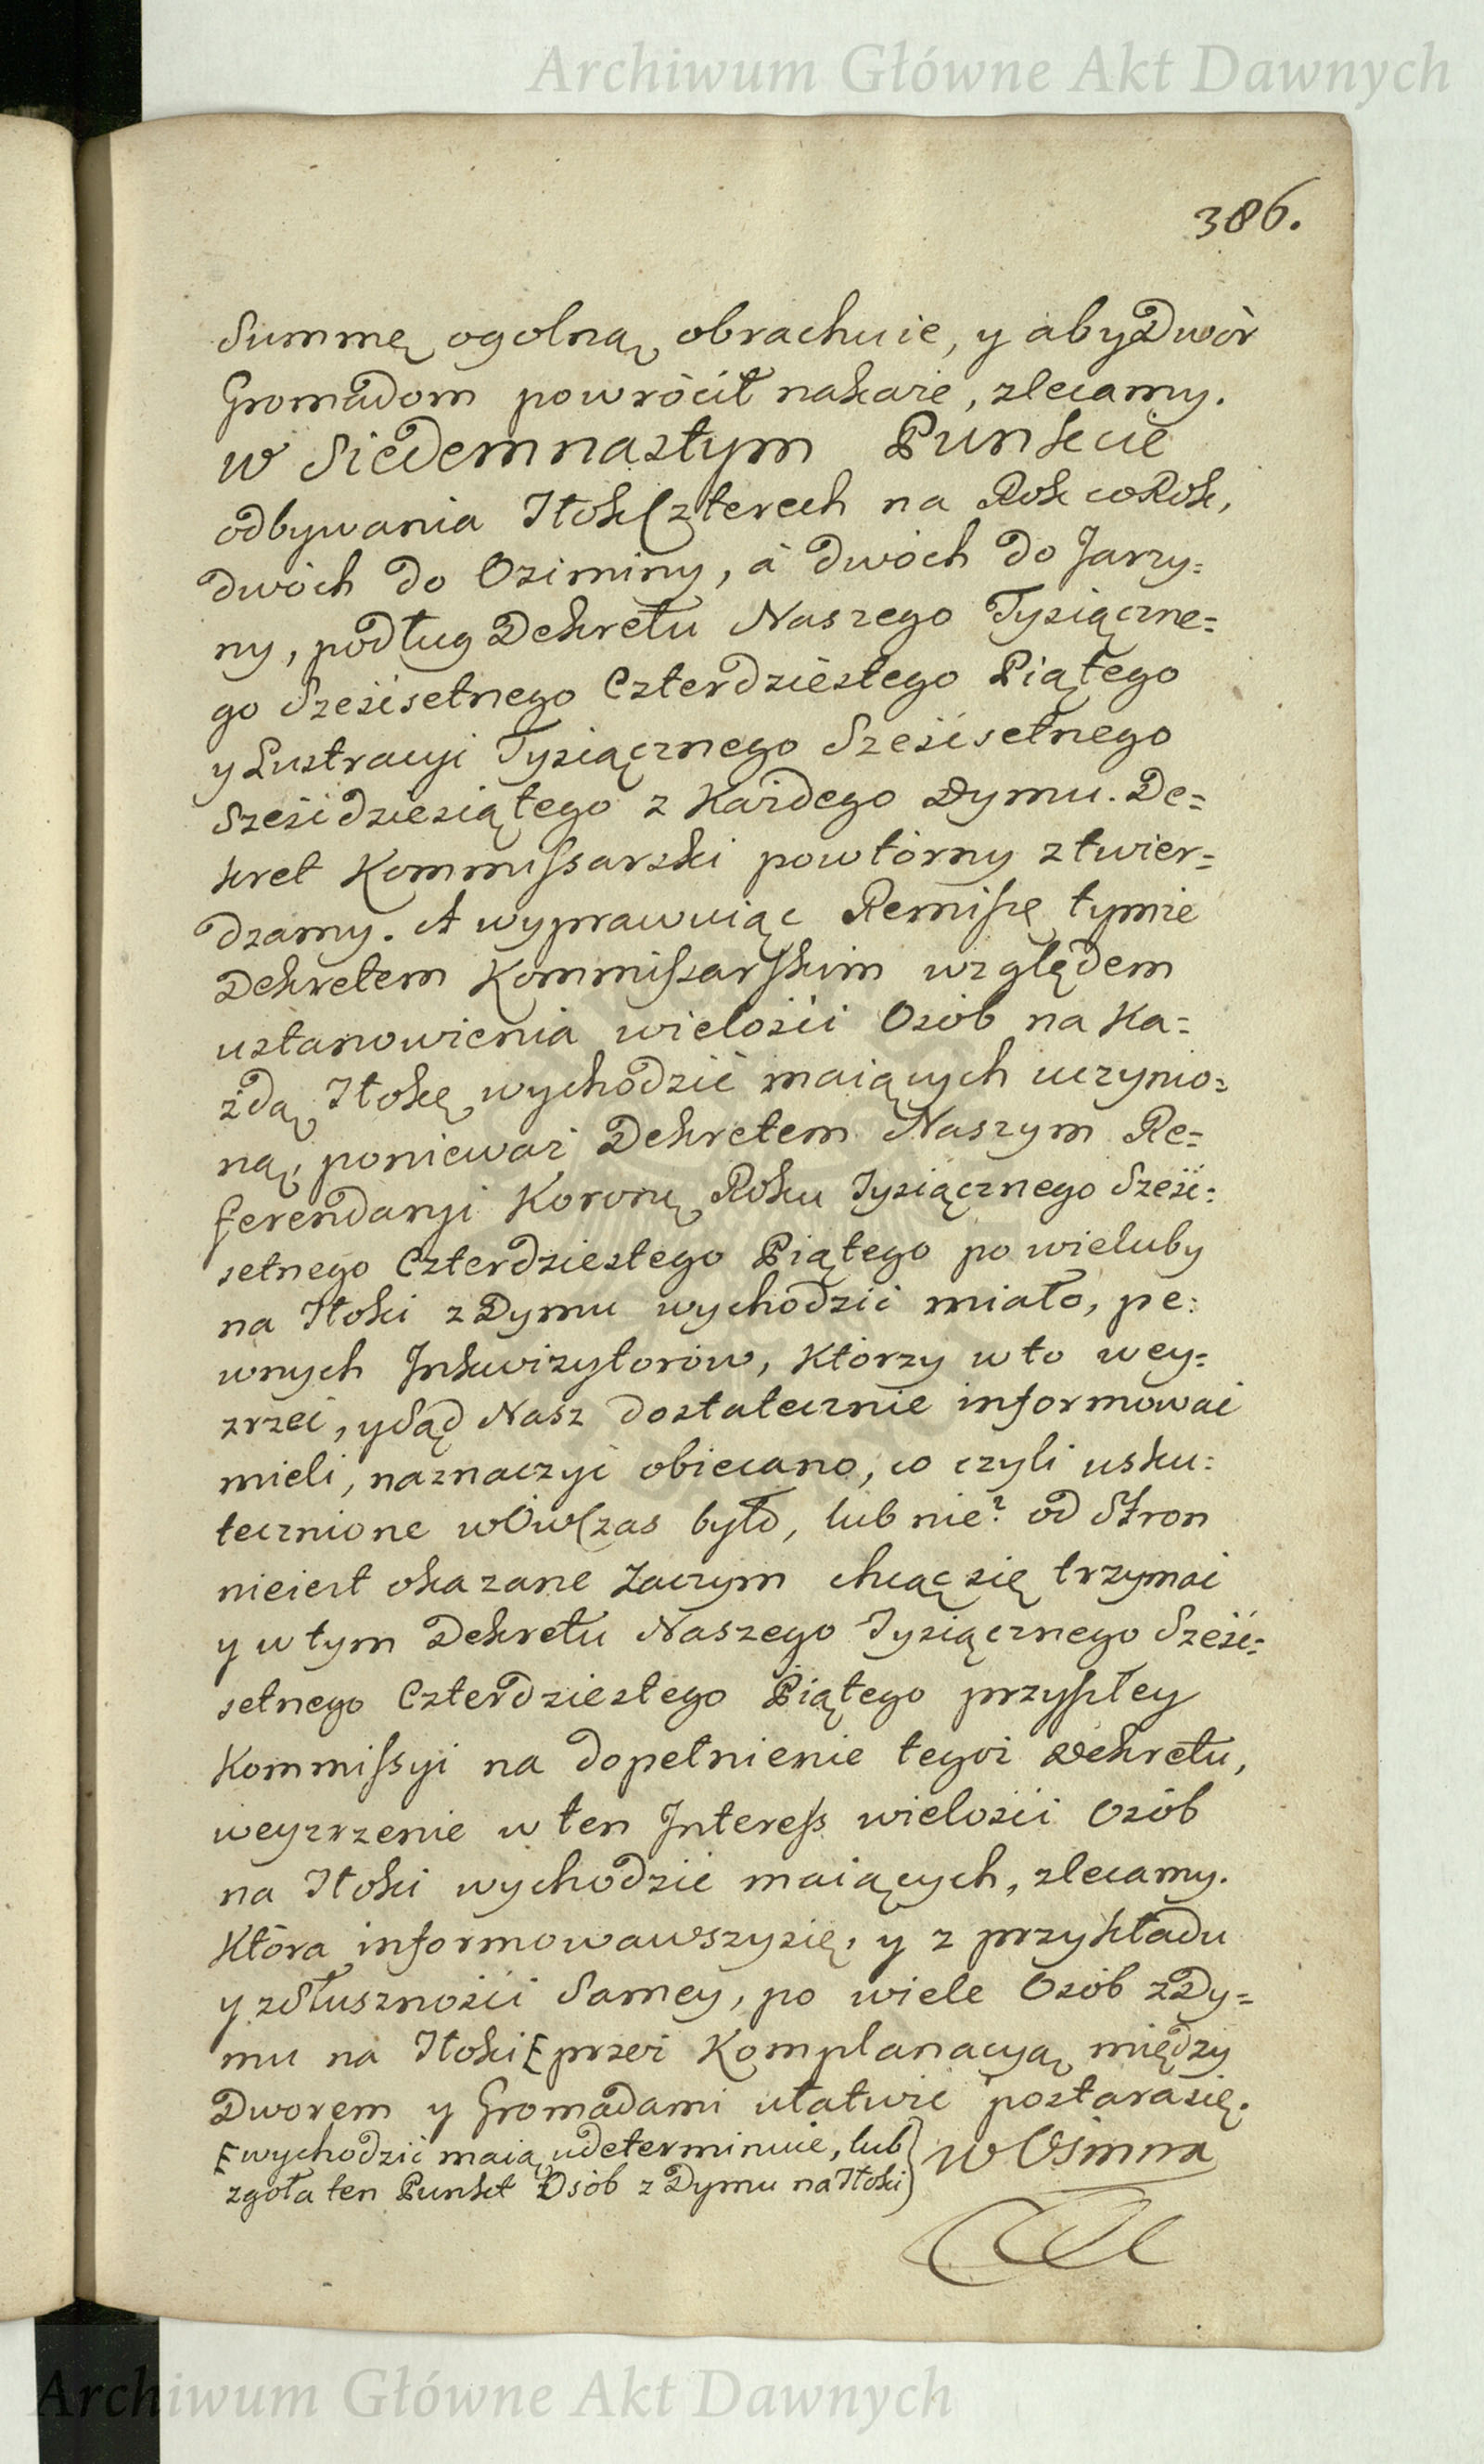 Archiwum Główne Akt Dawnych
386.
Summę ogolną obrachuie, y aby Dwór
Gromadom powrócił nakaże, zlecamy.
w Siedemnastym Punkcie
odbywania Tłok Czterech na Rok co Rok,
dwóch do Oziminy, á dwóch do Jarzy=
ny, podług Dekretu Naszego Tysiączne=
go Sześćsetnego Czterdziestego Piątego
y Lustracyi Tysiącznego Sześćsetnego
Sześćdziesiątego z Każdego Dymu. De=
kret Kommissarski powtórny ztwier=
dzamy. A wyprawuiąc Remissę tymże
Dekretem Kommissarskim względem
ustanowienia wielości Osób na Ka=
żdą Tłokę wychodzić maiących uczynio=
ną, ponieważ Dekretem Naszym Re=
ferendaryi Koronę Roku Tysiącznego Sześć=
setnego Czterdziestego Piątego po wieluby
na Tłoki z Dymu wychodzić miało, pe=
wnych Inkwizytorów, Którzy w to wey=
zrzeć, y Sąd Nasz dostatecznie informować
mieli, naznaczyć obiecano, co czyli usku=
tecznione w Ów Czas było, lub nie? od Stron
nieiest okazane Zaczym chcąc się trzymać
y w tym Dekretu Naszego Tysiącznego Sześć=
setnego Czterdziestego Piątego przyszłey
Kommissyi na dopełnienie tegoż Dekretu,
weyzrzenie w ten Interess wielości Osób
na Tłoki wychodzić maiących, zlecamy.
Która informowawszysię, y z przykładu
y z Słuszności Samey, po wiele Osób z Dy=
mu na Tłoki [ przez Komplanacyą między
Dworem y Gromadami ułatwić postarasię.
[ wychodzić maią udeterminuie, lub }
zgoła ten Punkt Osób z Dymu na Tłoki }
w Osmna
Archiwum Główne Akt Dawnych